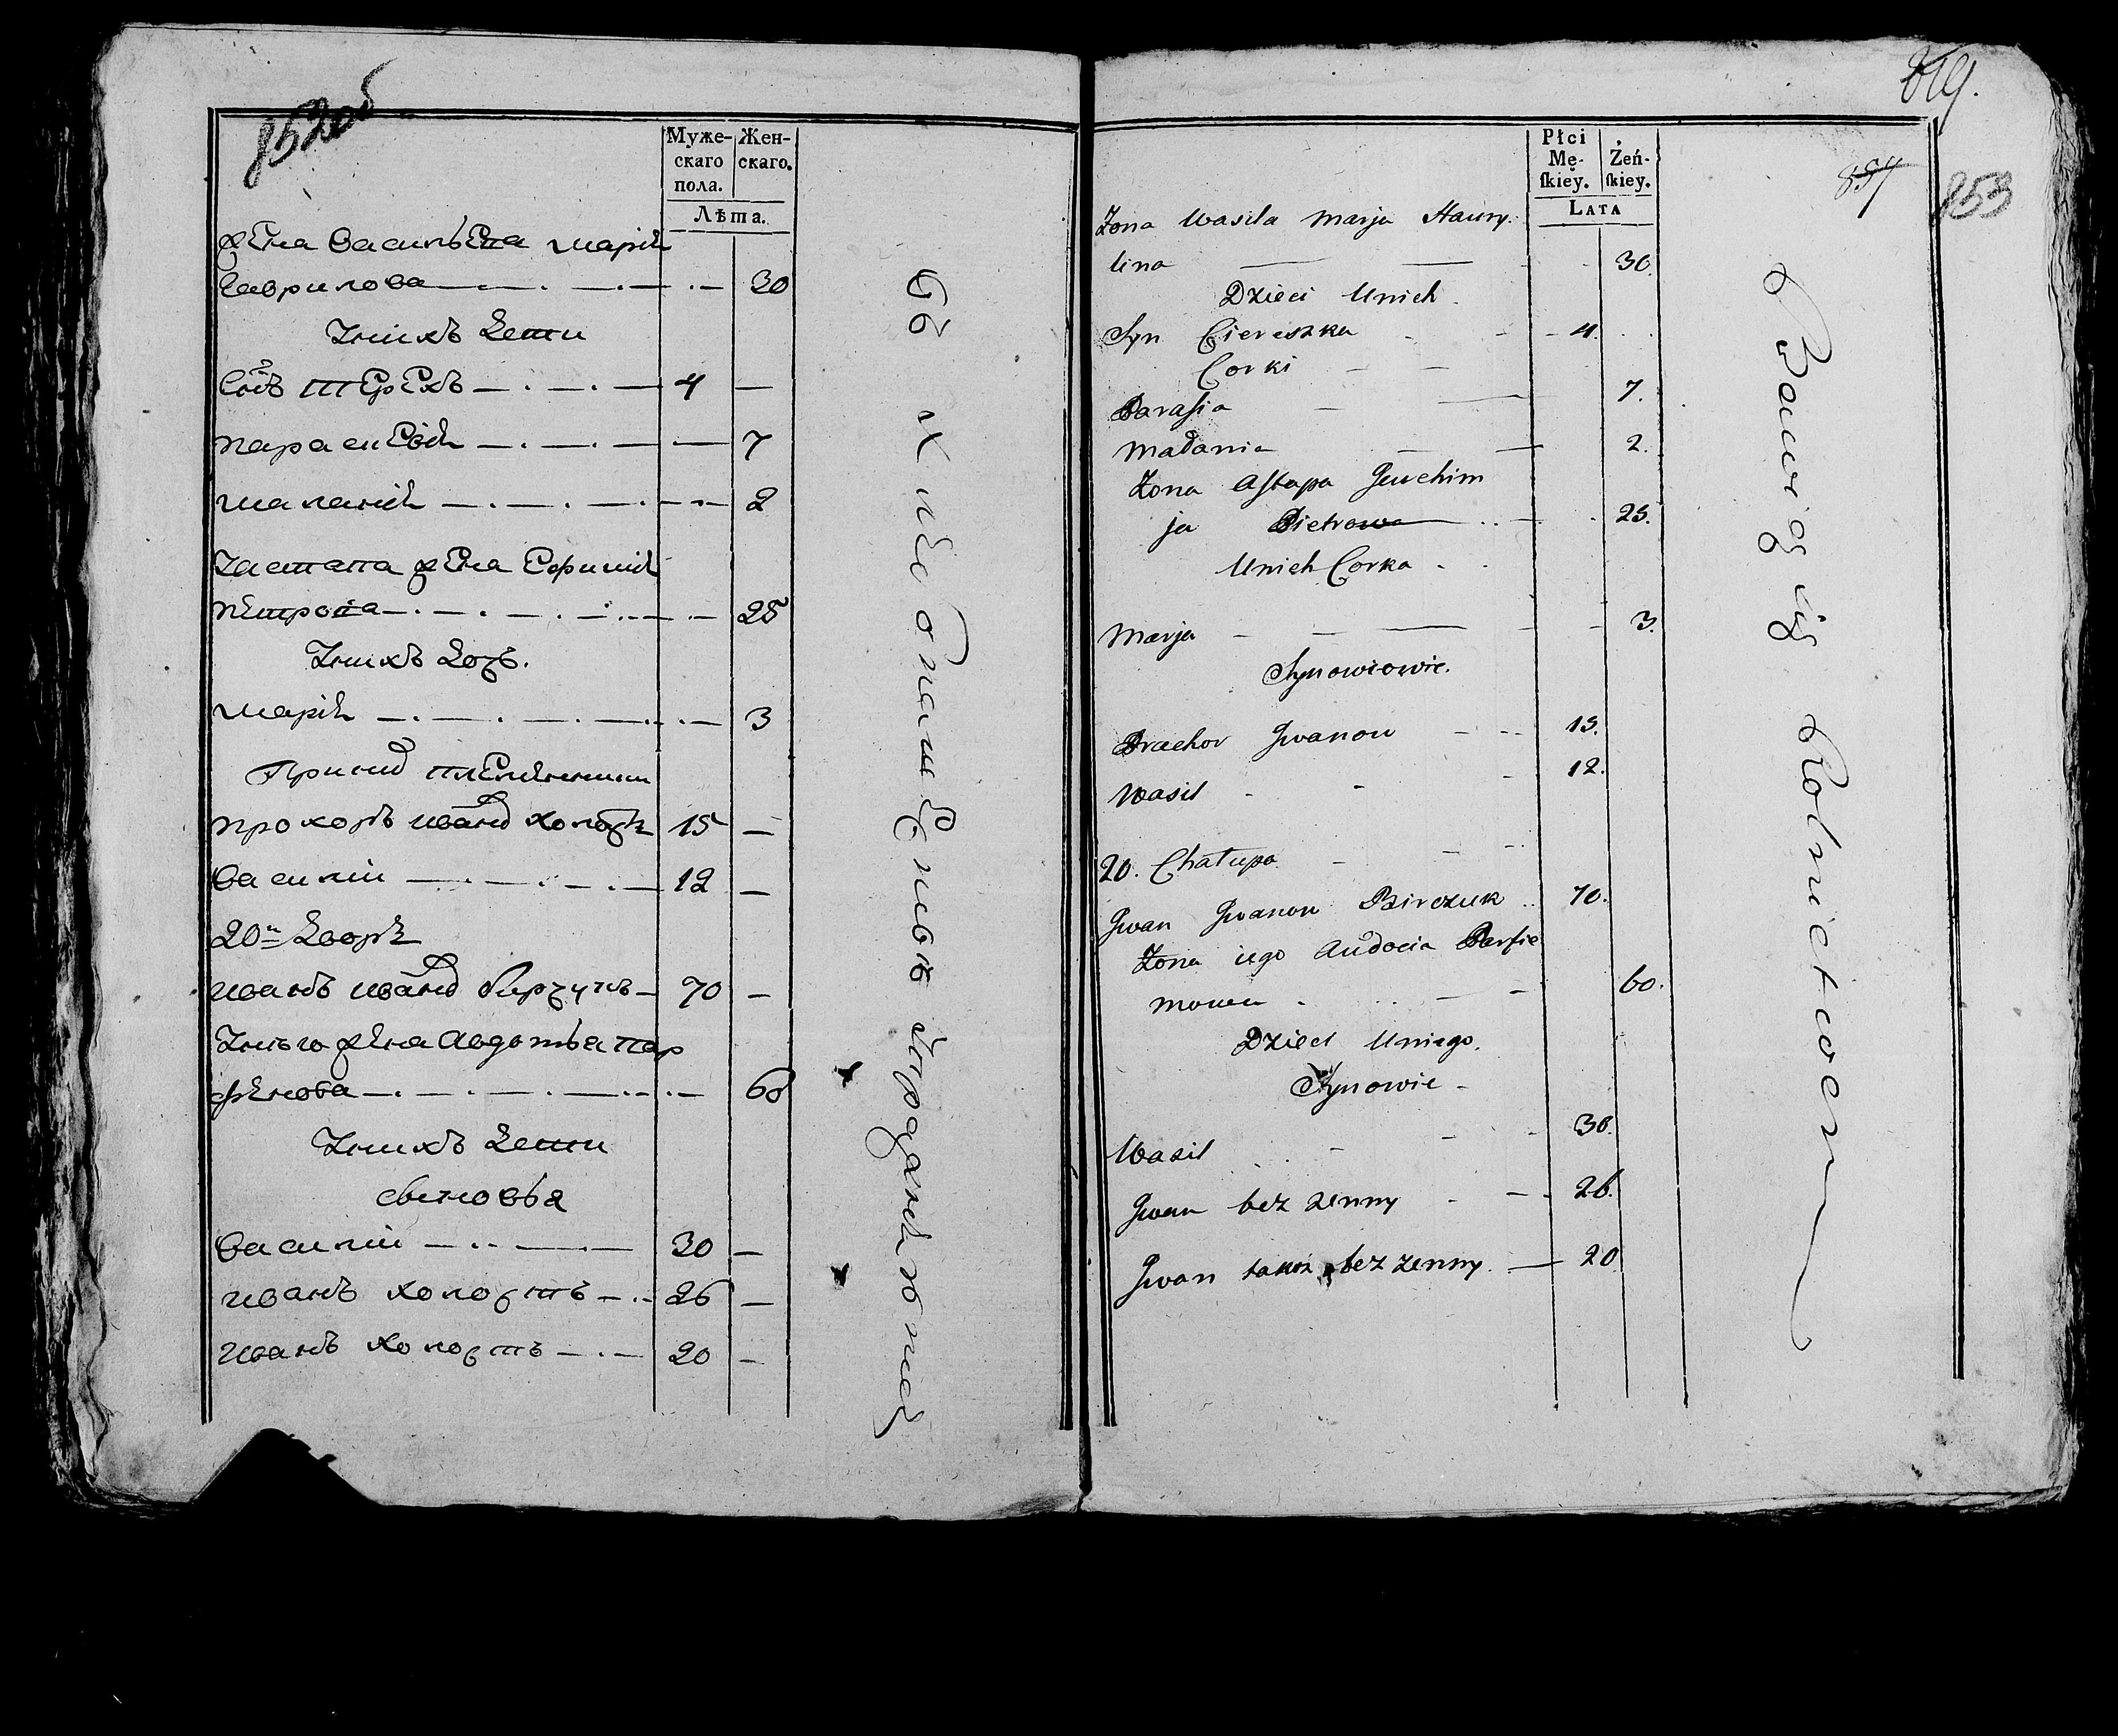 852об
Муже-
скаго
пола.
Жен-
скаго.
Лѣта.
жена Васильева марія
Гаврилова 30
Унихъ дети
Снъ терехъ 4
парасковія 7
маланія 2
Уастапа жена Ефимія
петрова 25
Унихъ дочь
марія 3
племянники
прохоръ ивано холостъ 15
Василии 12
20й дворъ
иванъ ивано бирчукъ 70
Унего жена авдотья пар
фенова 60
Унихъ дети
сыновья
Василии 30
иванъ холостъ 26
иванъ холостъ 20
819.
854
853
Płci
Mę-
skiey.
Żeń-
skiey.
LATA
Zona Wasila Marja Hawry-
lina 30.
Dzieci Unich
Syn Ciereszka 4.
Corki
Parasia 7.
Małania 2.
Zona Astapa Jewchim
ja Pietrowa 25.
Unich Corka
Marja 3.
Synowiowie.
Prachor Jwanow 15.
Wasil 12.
20. Chałupa
Jwan Jwanow Birczuk 70.
Zona iego Audocia Parfie
mowa 60.
Dzieci Uniego.
Synowie
Wasil 30.
Jwan bez zenny 26.
Jwan takoż bez zenny 20
Bawią się Rolnictwem